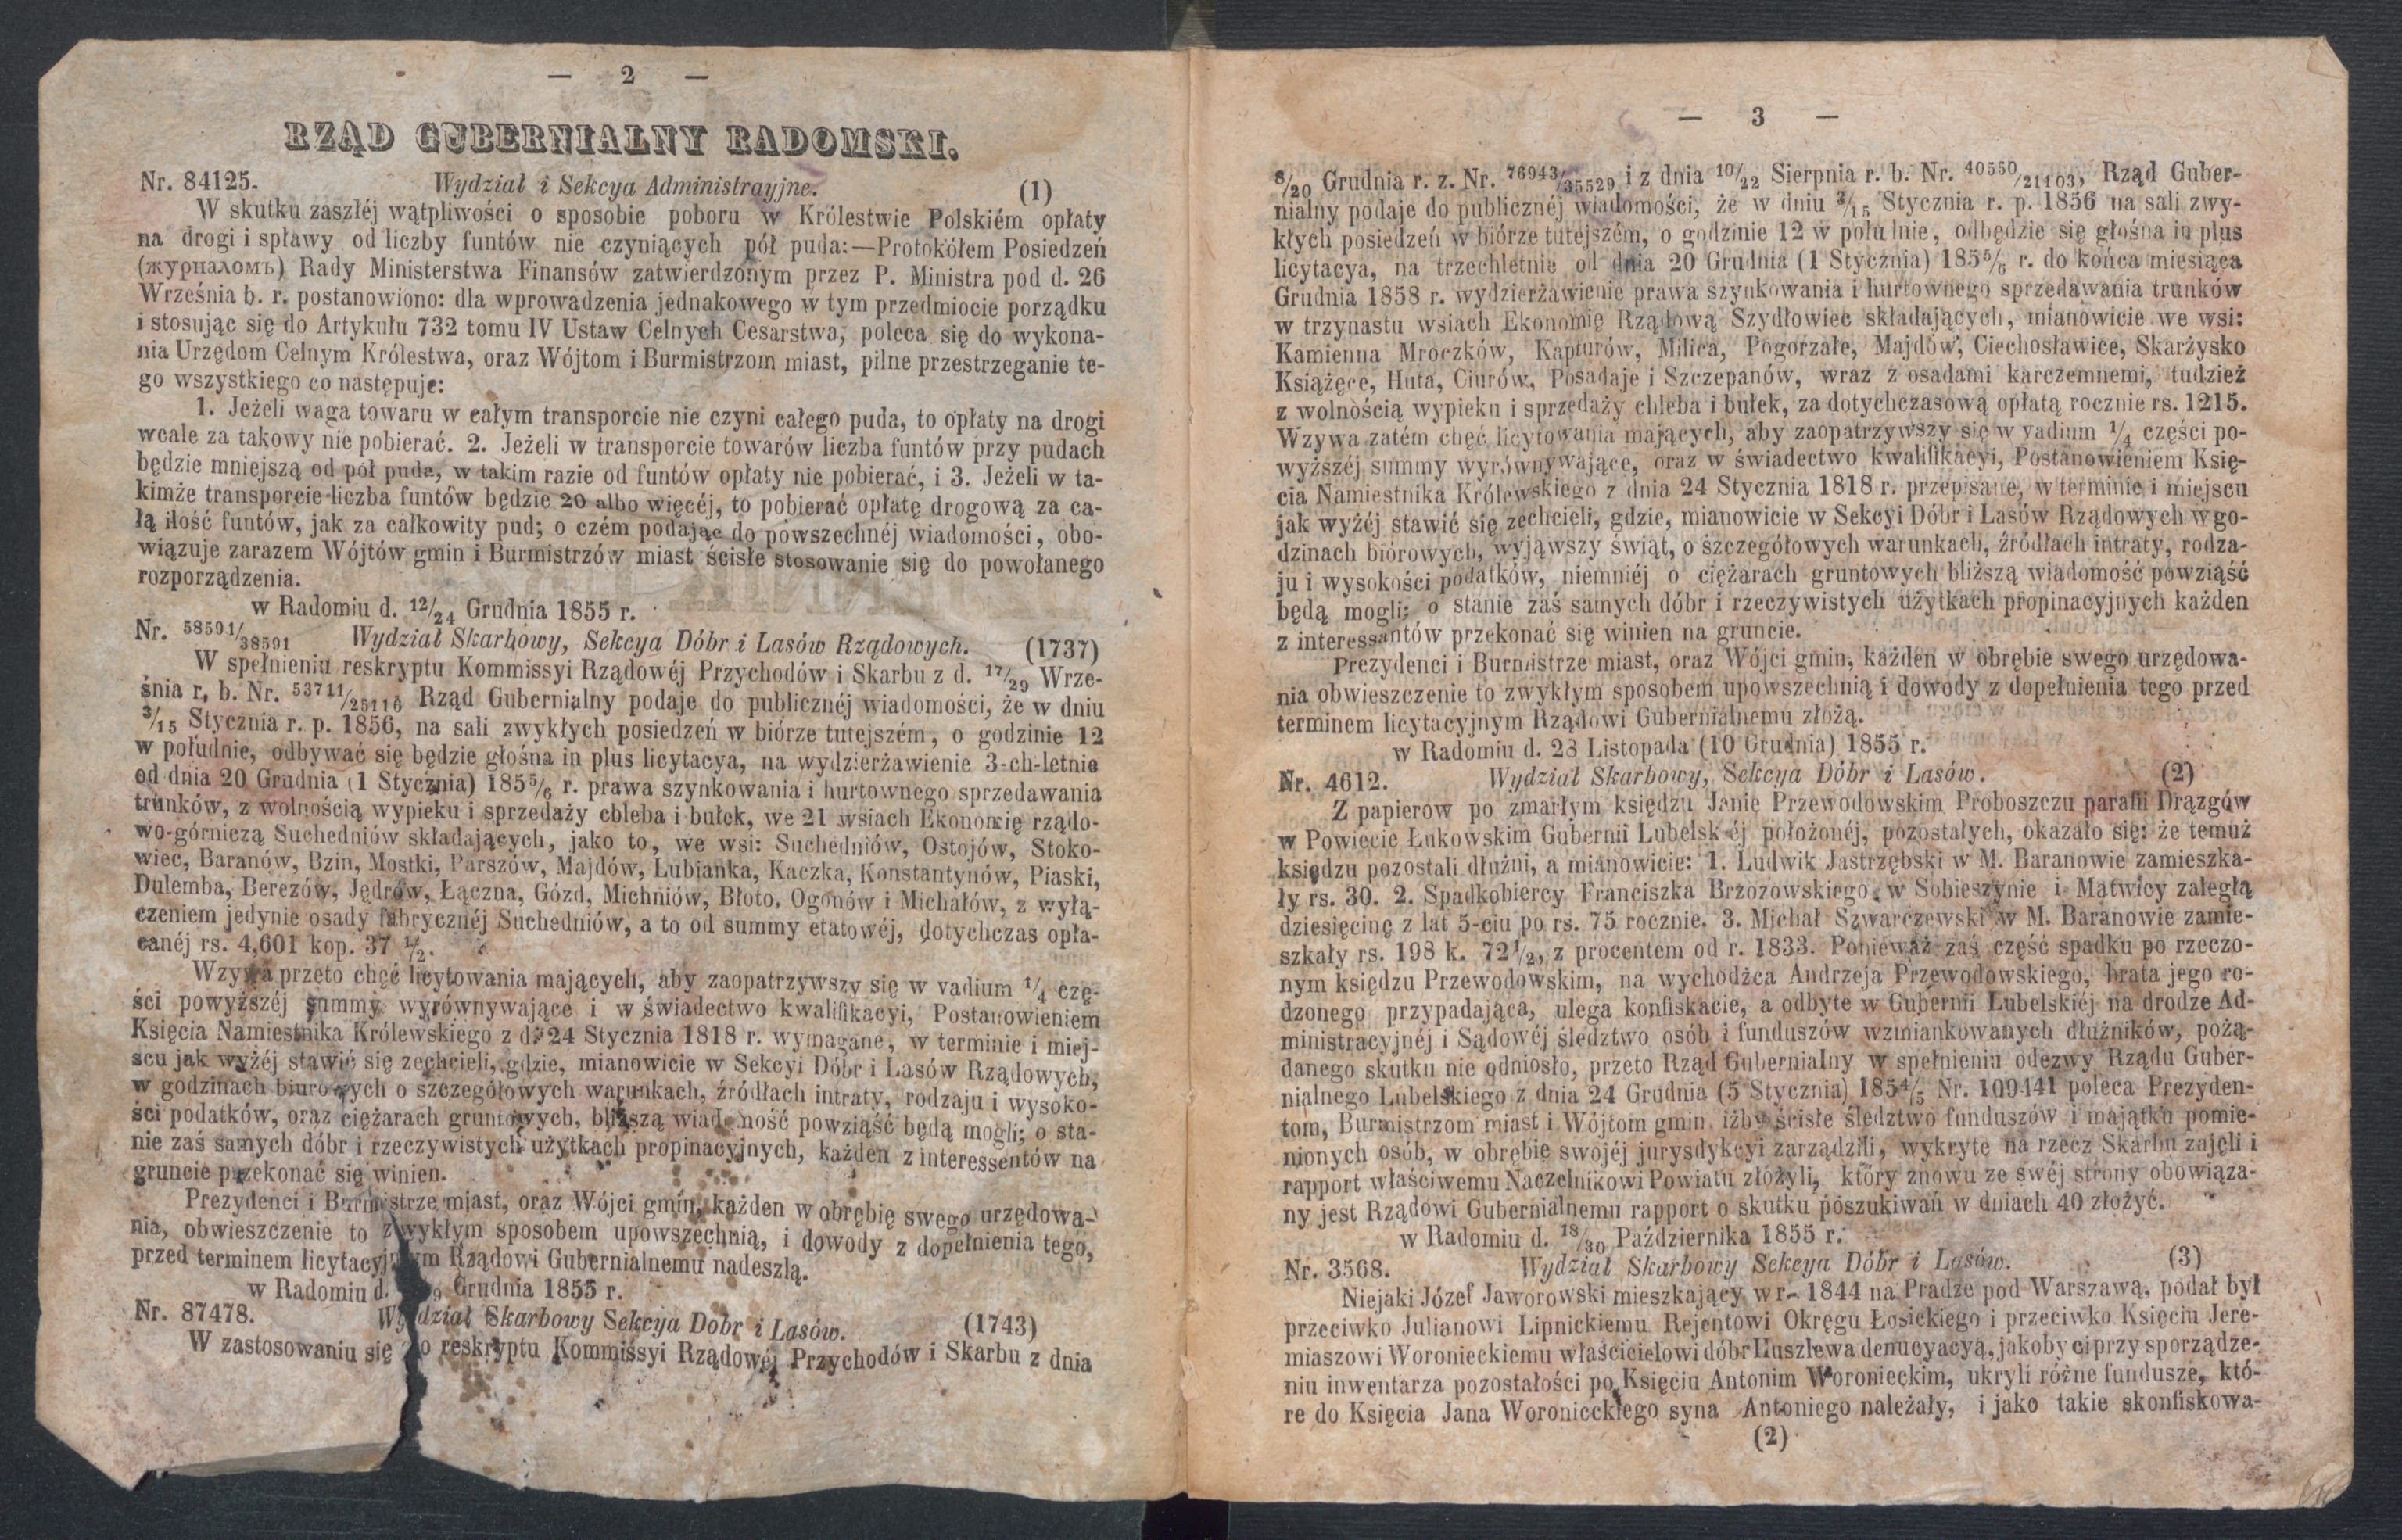 — 2 —
RZĄD GUBERNIALNY RADOMSKI.
Nr. 84125. Wydział i Sekcya Administrayjne. (1)
W skutku zaszłéj wątpliwości o sposobie poboru w Królestwie Polskiém opłaty
na drogi i spławy od liczby funtów nie czyniących pół puda:—Protokółem Posiedzeń
(журналомъ) Rady Ministerstwa Finansów zatwierdzonym przez P. Ministra pod d. 26
Września b. r. postanowiono: dla wprowadzenia jednakowego w tym przedmiocie porządku
i stosując się do Artykułu 732 tomu IV Ustaw Celnych Cesarstwa, poleca się do wykona-
nia Urzędom Celnym Królestwa, oraz Wójtom i Burmistrzom miast, pilne przestrzeganie te-
go wszystkiego co następuje:
1. Jeżeli waga towaru w całym transporcie nie czyni całego puda, to opłaty na drogi
wcale za takowy nie pobierać. 2. Jeżeli w transporcie towarów liczba funtów przy pudach
będzie mniejszą od pół puda, w takim razie od funtów opłaty nie pobierać, i 3. Jeżeli w ta-
kimże transporcie liczba funtów będzie 20 albo więcéj, to pobierać opłatę drogową za ca-
łą ilość funtów, jak za całkowity pud; o czém podając do powszechnéj wiadomości, obo-
wiązuje zarazem Wójtów gmin i Burmistrzów miast ścisłe stosowanie się do powołanego
rozporządzenia.
w Radomiu d. 12/24 Grudnia 1855 r.
Nr. 58591/38591 Wydział Skarbowy, Sekcya Dóbr i Lasów Rządowych. (1737)
W spełnieniu reskryptu Kommissyi Rządowéj Przychodów i Skarbu z d. 17/29 Wrze-
śnia r. b. Nr. 53711/25116 Rząd Gubernialny podaje do publicznéj wiadomości, że w dniu
3/15 Stycznia r. p. 1856, na sali zwykłych posiedzeń w biórze tutejszém, o godzinie 12
w południe, odbywać się będzie głośna in plus licytacya, na wydzierżawienie 3-ch-letnie
od dnia 20 Grudnia (1 Stycznia) 185 5/6 r. prawa szynkowania i hurtownego sprzedawania
trunków, z wolnością wypieku i sprzedaży chleba i bułek, we 21 wsiach Ekonomię rządo-
wo-górniczą Suchedniów składających, jako to, we wsi: Suchedniów, Ostojów, Stoko-
wiec, Baranów, Bzin, Mostki, Parszów, Majdów, Łubianka, Kaczka, Konstantynów, Piaski,
Dulemba, Berezów, Jędrów, Łączna, Gózd, Michniów, Błoto, Ogonów i Michałów, z wyłą-
czeniem jedynie osady fabrycznéj Suchedniów, a to od summy etatowéj, dotychczas opła-
canéj rs. 4,601 kop. 37 1/2.
Wzywa przeto chęć licytowania mających, aby zaopatrzywszy się w vadium 1/4 czę-
ści powyższéj summy wyrównywające i w świadectwo kwalifikacyi, Postanowieniem
Księcia Namiestnika Królewskiego z d. 24 Stycznia 1818 r. wymagane, w terminie i miej-
scu jak wyżéj stawić się zechcieli, gdzie, mianowicie w Sekcyi Dóbr i Lasów Rządowych,
w godzinach biurowych o szczegółowych warunkach, źródłach intraty, rodzaju i wysoko-
ści podatków, oraz ciężarach gruntowych, bliższą wiadomość powziąść będą mogli; o sta-
nie zaś samych dóbr i rzeczywistych użytkach propinacyjnych, każden z interessentów na
gruncie przekonać się winien.
Prezydenci i Burmistrze miast, oraz Wójci gmin, każden w obrębię swego urzędowa-
nia, obwieszczenie to zwykłym sposobem upowszechnią, i dowody z dopełnienia tego,
przed terminem licytacyjnym Rządowi Gubernialnemu nadeszlą.
w Radomiu d. Grudnia 1855 r.
Nr. 87478. Wydział Skarbowy Sekcya Dóbr i Lasów. (1743)
W zastosowaniu się do reskryptu Kommissyi Rządowéj Przychodów i Skarbu z dnia
— 3 —
8/20 Grudnia r. z. Nr. 76943/35529 i z dnia 10/22 Sierpnia r. b. Nr. 40550/21103, Rząd Guber-
nialny podaje do publicznéj wiadomości, że w dniu 3/15 Stycznia r. p. 1856 na sali zwy-
kłych posiedzeń w biórze tutejszém, o godzinie 12 w południe, odbędzie się głośna in plus
licytacya, na trzechletnie od dnia 20 Grudnia (1 Stycznia) 185 5/6 r. do końca miesiąca
Grudnia 1858 r. wydzierżawienie prawa szynkowania i hurtownego sprzedawania trunków
w trzynastu wsiach Ekonomię Rządową Szydłowiec składających, mianowicie we wsi:
Kamienna Mroczków, Kapturów, Milica, Pogorzałe, Majdów, Ciechosławice, Skarżysko
Książęce, Huta, Ciurów, Posadaje i Szczepanów, wraz z osadami karczemnemi, tudzież
z wolnością wypieku i sprzedaży chleba i bułek, za dotychczasową opłatą rocznie rs. 1215.
Wzywa zatém chęć licytowania mających, aby zaopatrzywszy się w vadium 1/4 części po-
wyższéj summy wyrównywające, oraz w świadectwo kwalifikacyi, Postanowieniem Księ-
cia Namiestnika Królewskiego z dnia 24 Stycznia 1818 r. przepisane, w terminie i miejscu
jak wyżéj stawić się zechcieli, gdzie, mianowicie w Sekcyi Dóbr i Lasów Rządowych w go-
dzinach biórowych, wyjąwszy świąt, o szczegółowych warunkach, źródłach intraty, rodza-
ju i wysokości podatków, niemniéj o ciężarach gruntowych bliższą wiadomość powziąść
będą mogli; o stanie zaś samych dóbr i rzeczywistych użytkach propinacyjnych każden
z interessantów przekonać się winien na gruncie.
Prezydenci i Burmistrze miast, oraz Wójci gmin, każden w obrębie swego urzędowa-
nia obwieszczenie to zwykłym sposobem upowszechnią i dowody z dopełnienia tego przed
terminem licytacyjnym Rządowi Gubernialnemu złożą.
w Radomiu d. 28 Listopada (10 Grudnia) 1855 r.
Nr. 4612. Wydział Skarbowy, Sekcya Dóbr i Lasów. (2)
Z papierów po zmarłym księdzu Janie Przewodowskim Proboszczu parafii Drązgów
w Powiecie Łukowskim Gubernii Lubelskiéj położonéj, pozostałych, okazało się: że temuż
księdzu pozostali dłużni, a mianowicie: 1. Ludwik Jastrzębski w M. Baranowie zamieszka-
ły rs. 30. 2. Spadkobiercy Franciszka Brzozowskiego w Sobieszynie i Mątwicy zaległą
dziesięcinę z lat 5-ciu po rs. 75 rocznie. 3. Michał Szwarczewski w M. Baranowie zamie-
szkały rs. 198 k. 72 1/2, z procentem od r. 1833. Ponieważ zaś część spadku po rzeczo-
nym księdzu Przewodowskim, na wychodźca Andrzeja Przewodowskiego, brata jego ro-
dzonego przypadająca, ulega konfiskacie, a odbyte w Gubernii Lubelskiéj na drodze Ad-
ministracyjnéj i Sądowéj śledztwo osób i funduszów wzmiankowanych dłużników, pożą-
danego skutku nie odniosło, przeto Rząd Gubernialny w spełnieniu odezwy Rządu Guber-
nialnego Lubelskiego z dnia 24 Grudnia (5 Stycznia) 185 4/5 Nr. 109441 poleca Prezyden-
tom, Burmistrzom miast i Wójtom gmin, iżby ścisłe śledztwo funduszów i majątku pomie-
nionych osób, w obrębie swojéj jurysdykcyi zarządzili, wykryte na rzecz Skarbu zajęli i
rapport właściwemu Naczelnikowi Powiatu złożyli, który znowu ze swéj strony obowiąza-
ny jest Rządowi Gubernialnemu rapport o skutku poszukiwań w dniach 40 złożyć.
w Radomiu d. 18/30 Października 1855 r.
Nr. 3568. Wydział Skarbowy Sekcya Dóbr i Lasów. (3)
Niejaki Józef Jaworowski mieszkający w r. 1844 na Pradze pod Warszawą, podał był
przeciwko Julianowi Lipnickiemu Rejentowi Okręgu Łosickiego i przeciwko Księciu Jere-
miaszowi Woronieckiemu właścicielowi dóbr Huszlewa denucyacyą, jakoby ci przy sporządze-
niu inwentarza pozostałości po Księciu Antonim Woronieckim, ukryli różne fundusze, któ-
re do Księcia Jana Woronieckiego syna Antoniego należały, i jako takie skonfiskowa-
(2)